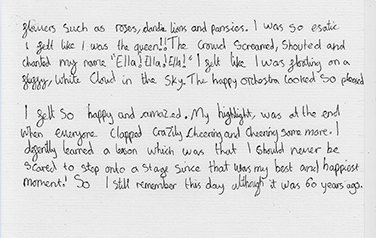 flowers such as roses, dandie lions and pansies. I was so esatic
I felt like I was the queen!! The Crowd Screamed, Shouted and
chanted my name "Ella! Ella! Ella!" I felt like I was floating on a
fluzzy, White Cloud in the Sky. The happy orchestra looked so pleased
I felt so happy and amazed. My highlight, was at the end
When everyone Clapped Crazily, Cheering and Cheering some more. I
learned a lesson which was that I should never be
scared to step onto a stage since that was my best and happiest
moment! So I still remember this day although it was 60 years ago.